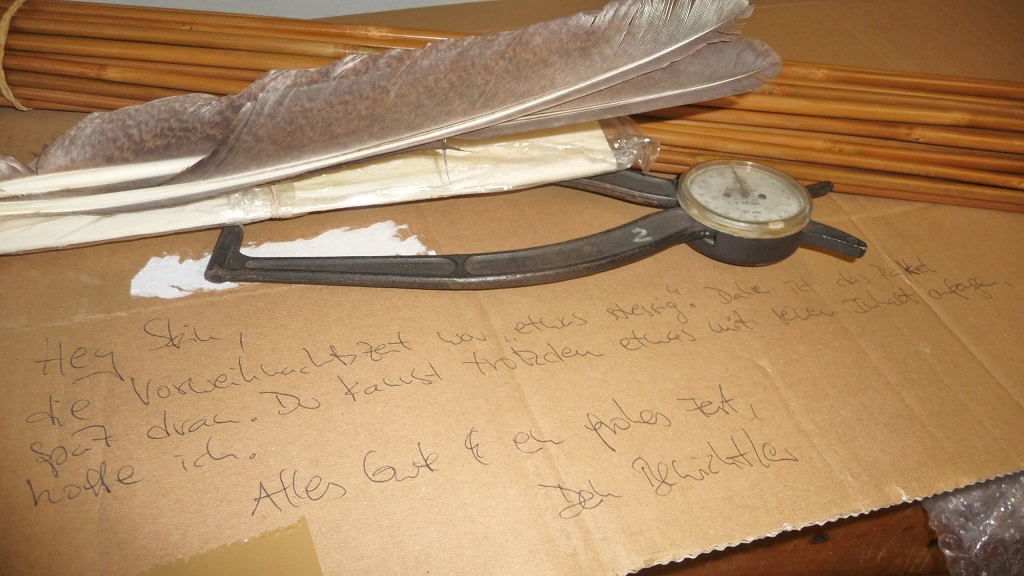 2
Hey
die Vorweihnachtszeit war „etwas stressig“. Daher ist das Paket
spät dran. Du kannst trotzdem etwas mit Inhalt anfangen,
hoffe ich.
Alles Gute & ein frohes Fest,
Dein